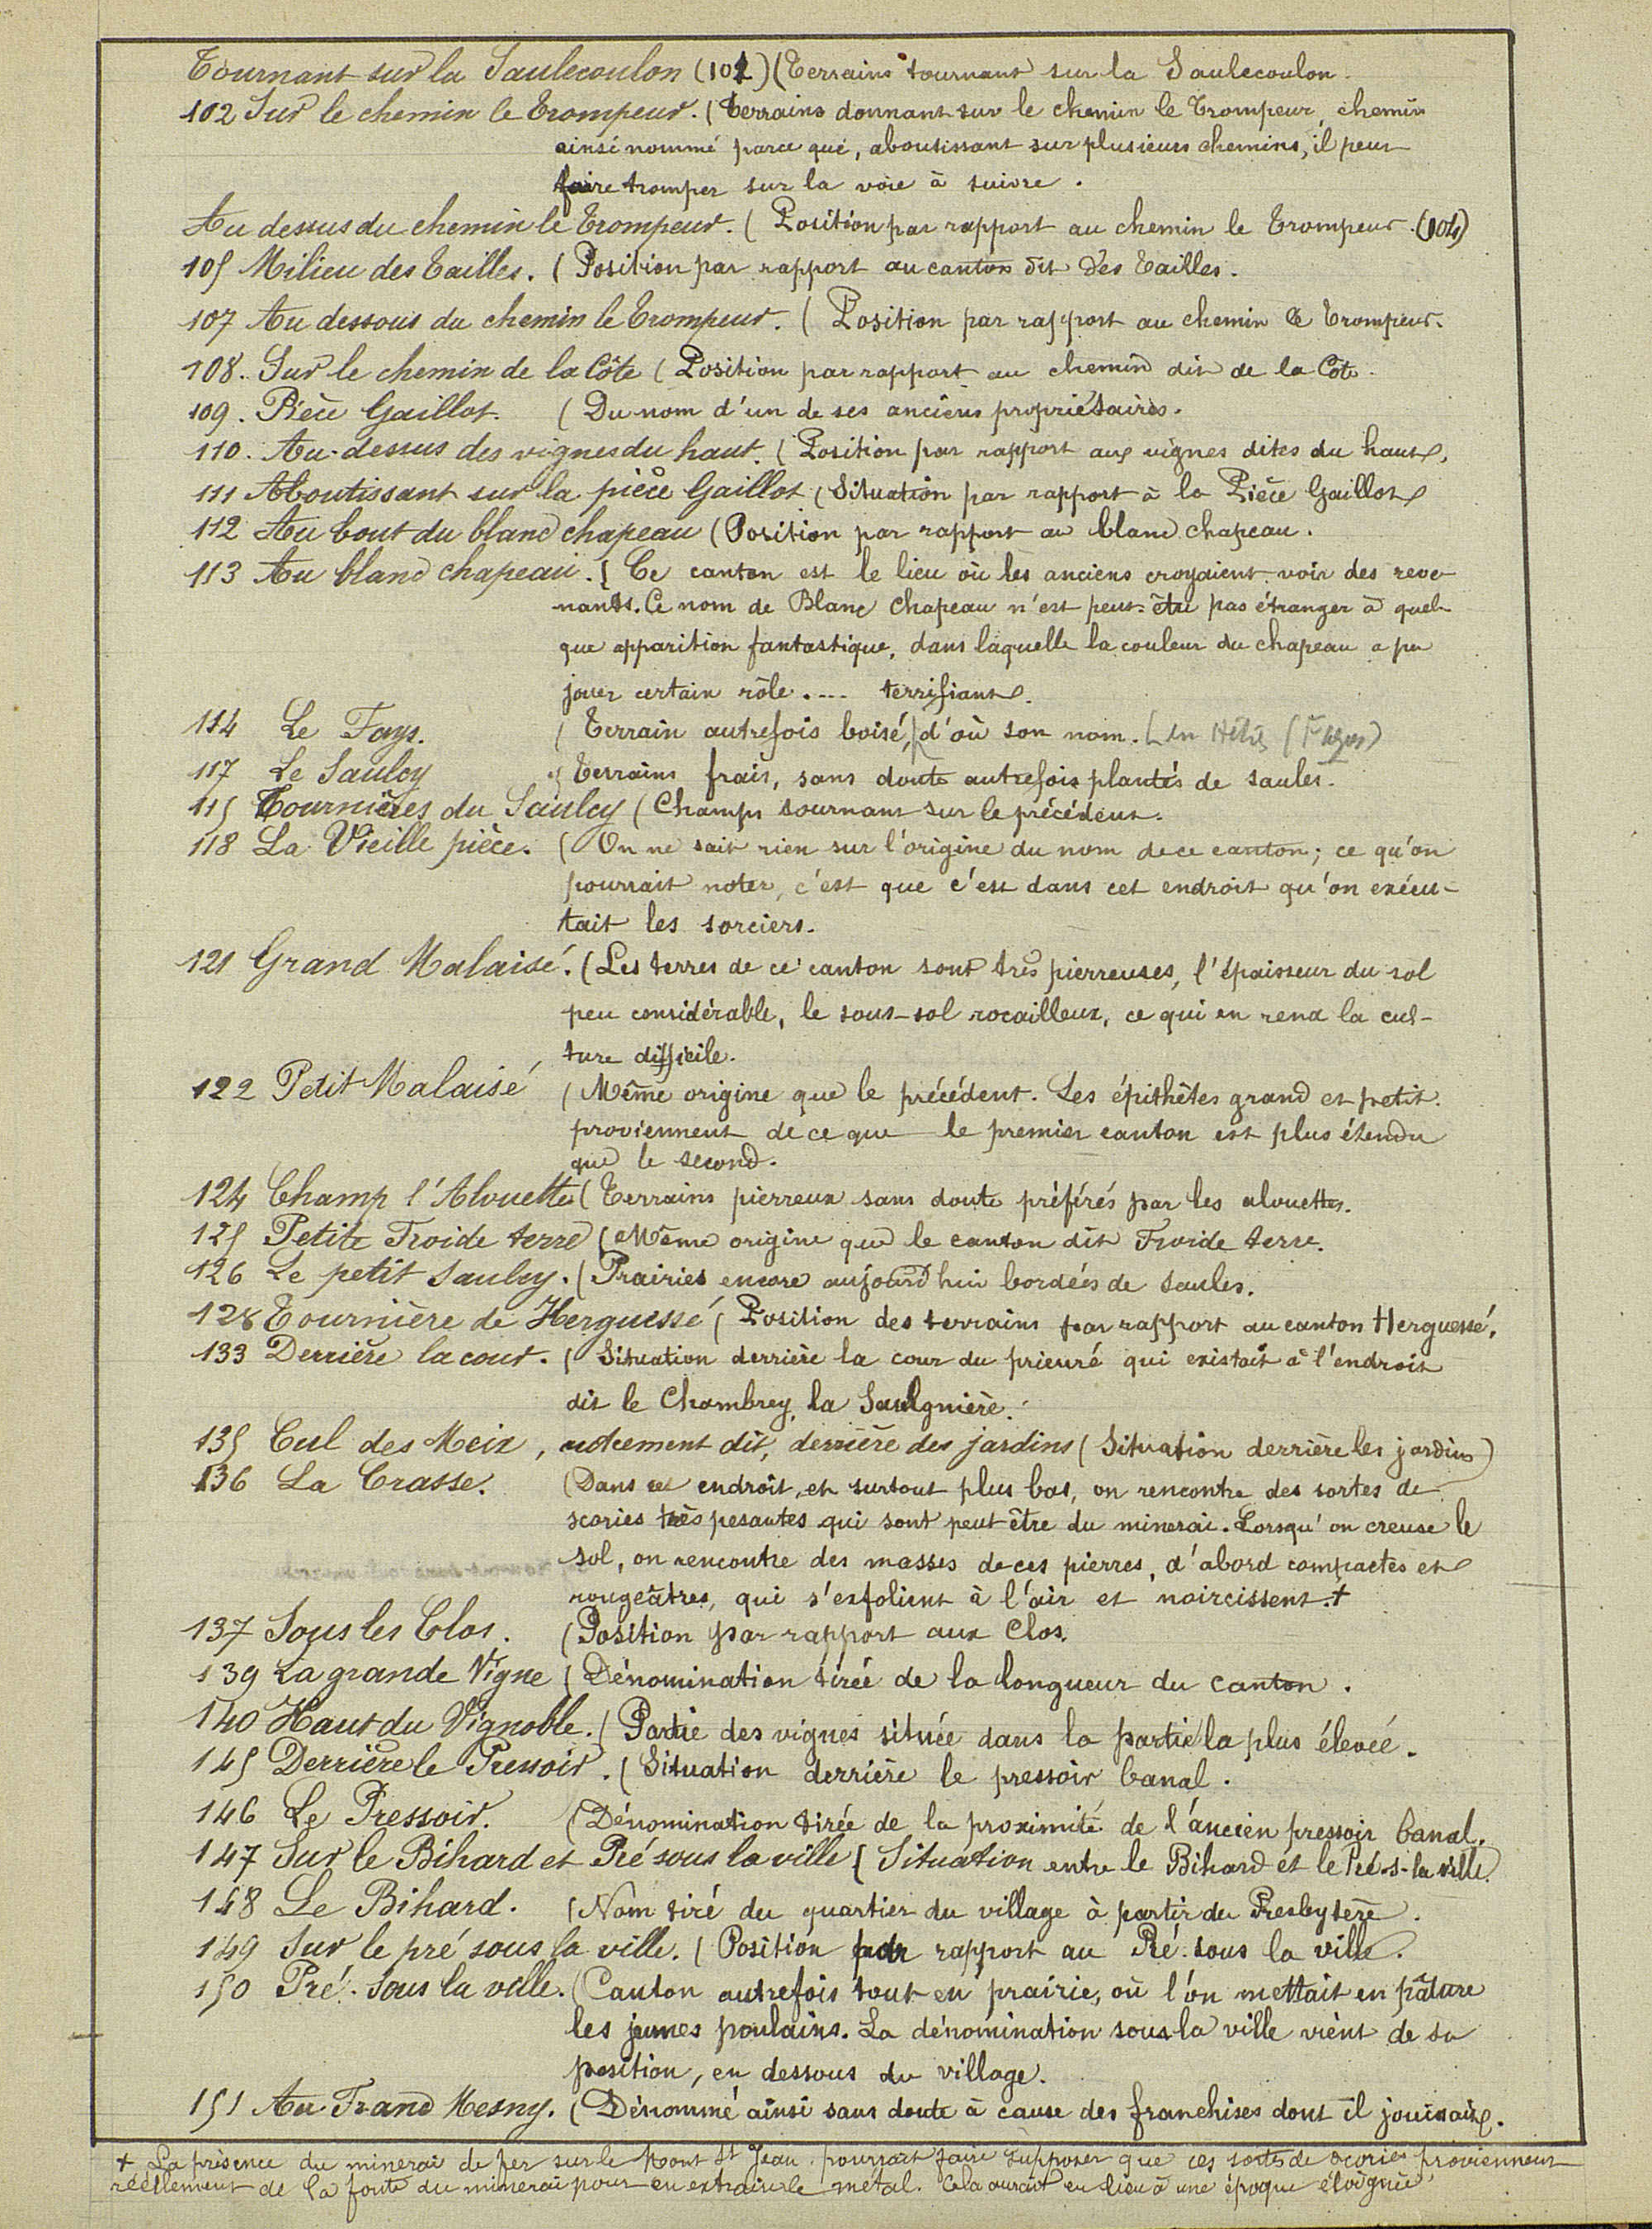 Tournant sur la Saulecoulon (101) (Terrains tournant sur la Saulecoulon.
102 Sur le chemin le Trompeur. (Terrains donnant sur le chemin le Trompeur, chemin
ainsi nommé parce que, aboutissant sur plusieurs chemins, il peut
faire tromper sur la voie à suivre.
Au dessus du chemin le Trompeur. (Position par rapport au chemin le Trompeur. (104)
105 Milieu des Tailles. (Position par rapport au canton dit des Tailles.
107 Au dessous du chemin le Trompeur. (Position par rapport au chemin le Trompeur.
108. Sur le chemin de la Côte (Position par rapport au chemin dit de la Côte.
109. Pièce Gaillot. (Du nom d'un de ses anciens propriétaires.
110. Au-dessus des vignes du haut. (Position par rapport aux vignes dites du haut.
111 Aboutissant sur la pièce Gaillot (Situation par rapport à la Pièce Gaillot
112 Au bout du blanc chapeau (Position par rapport au blanc chapeau.
113 Au blanc chapeau. (Ce canton est le lieu où les anciens croyaient voir des reve-
nants. Ce nom de Blanc Chapeau n'est peut-être pas étranger à quel-
que apparition fantastique, dans laquelle la couleur du chapeau a pu
jouer certain rôle .... terrifiant.
114 Le Fays. (Terrain autrefois boisé, d'où son nom.
117 Le Saulcy (Terrains frais, sans doute autrefois plantés de saules.
115 Tournières du Saulcy (Champs tournant sur le précédent.
118 La Vieille pièce. (On ne sait rien sur l'origine du nom de ce canton; ce qu'on
pourrait noter, c'est que c'est dans cet endroit qu'on exécu-
tait les sorciers.
121 Grand Malaisé. (Les terres de ce canton sont très pierreuses, l'épaisseur du sol
peu considérable, le sous-sol rocailleux, ce qui en rend la cul-
ture difficile.
122 Petit Malaisé (Même origine que le précédent. Les épithètes grand et petit
proviennent de ce que le premier canton est plus étendu
que le second.
124 Champ l'Alouette (Terrains pierreux sans doute préférés par les alouettes.
125 Petite Froide terre (Même origine que le canton dit Froide terre.
126 Le petit Saulcy. (Prairies encore aujourd'hui bordées de saules.
128 Tournière de Herguessé (Position des terrains par rapport au canton Herguessé.
133 Derrière la cour. (Situation derrière la cour du prieuré qui existait à l'endroit
dit le Chambrey, la Saulgnière.
135 Cul des Meix, autrement dit, derrière des jardins (Situation derrière les jardins)
136 La Crasse. (Dans cet endroit, et surtout plus bas, on rencontre des sortes de
scories très pesantes qui sont peut être du minerai. Lorsqu'on creuse le
sol, on rencontre des masses de ces pierres, d'abord compactes et
rougeâtres, qui s'exfolient à l'air et noircissent. +
137 Sous les Clos. (Position par rapport aux Clos.
139 La grande Vigne (Dénomination tirée de la longueur du canton.
140 Haut du Vignoble. (Partie des vignes située dans la partie la plus élevée.
145 Derrière le Pressoir. (Situation derrière le pressoir banal.
146 Le Pressoir. (Dénomination tirée de la proximité de l'ancien pressoir banal.
147 Sur le Bihard et Pré sous la ville (Situation entre le Bihard et le Pré-s-la ville.
148 Le Bihard. (Nom tiré du quartier du village à partir du Presbytère.
149 Sur le pré sous la ville. (Position par rapport au Pré sous la ville.
150 Pré sous la ville. (Canton autrefois tout en prairie, où l'on mettait en pâture
les jeunes poulains. La dénomination sous la ville vient de sa
position, en dessous du village.
151 Au Franc Mesny. (Dénommé ainsi sans doute à cause des franchises dont il jouissait.
+ La présence du minerai de fer sur le Mont St Jean pourrait faire supposer que ces sortes de scories proviennent
réellement de la fonte du minerai pour en extraire le métal. Cela aurait eu lieu à une époque éloignée